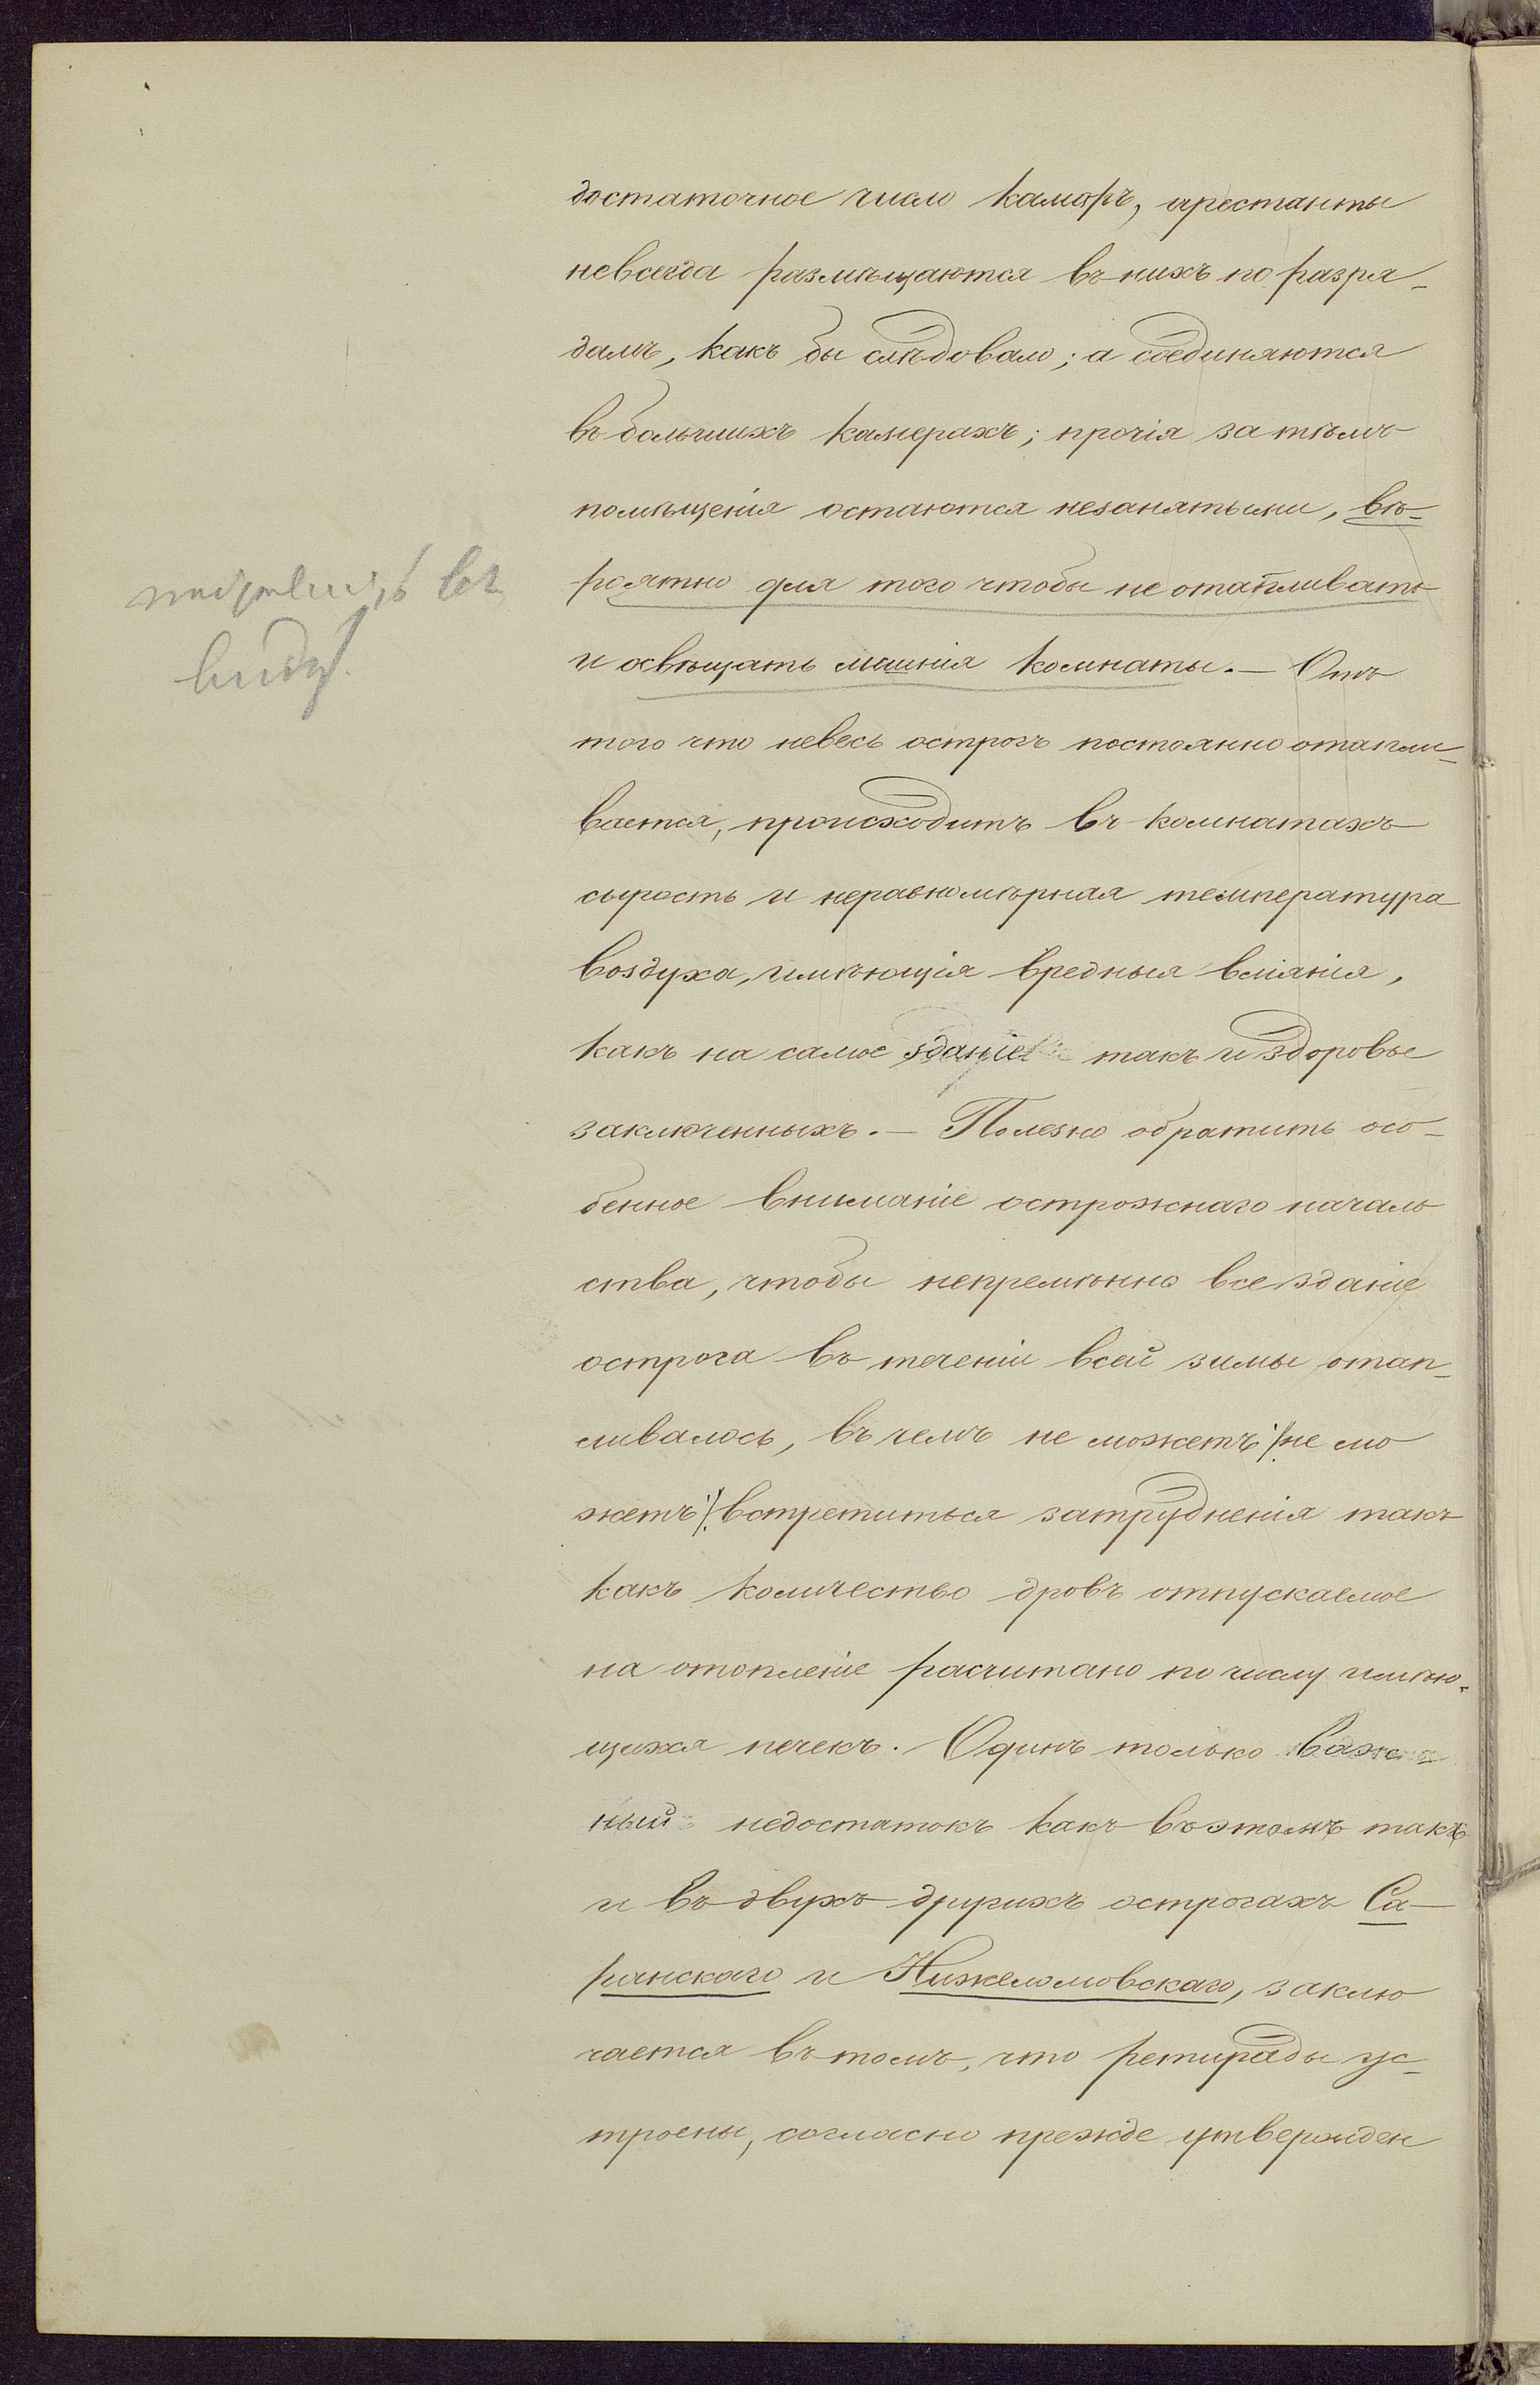 достаточное число камеръ, арестанты
невсегда размѣщаются въ нихъ по разря-
дамъ, какъ бы слѣдовало; а соединяются
въ большихъ камерахъ; прочія за тѣмъ
помѣщенія остаются незанятыми, вѣ-
роятно для того чтобы не отапливать
и освѣщать лишнія комнаты. — Отъ
того что невесь острогъ постоянно отапли-
вается, происходитъ въ комнатахъ
сырость и неравномѣрная температура
воздуха, имѣющія вредныя вліянія,
какъ на самое зданіе такъ и здоровье
заключенныхъ. — Полезно обратить осо-
бенное вниманіе острожнаго началь
ства, чтобы непремѣнно все зданіе
острога въ теченіи всей зимы отап-
ливалось, въ чемъ не можетъ /не мо
жетъ/ встретиться затрудненія такъ
какъ количество дровъ отпускаемое
на отопленіе расчитано по числу имѣю-
щихся печекъ. Одинъ только важ
ный недостатокъ какъ въ этомъ такъ
и въ двухъ другихъ острогахъ Са-
ранскаго и Нижеломовскаго, заклю
чается въ томъ, что ретирады ус-
троены, согласно прежде утвержден
въ
виду.